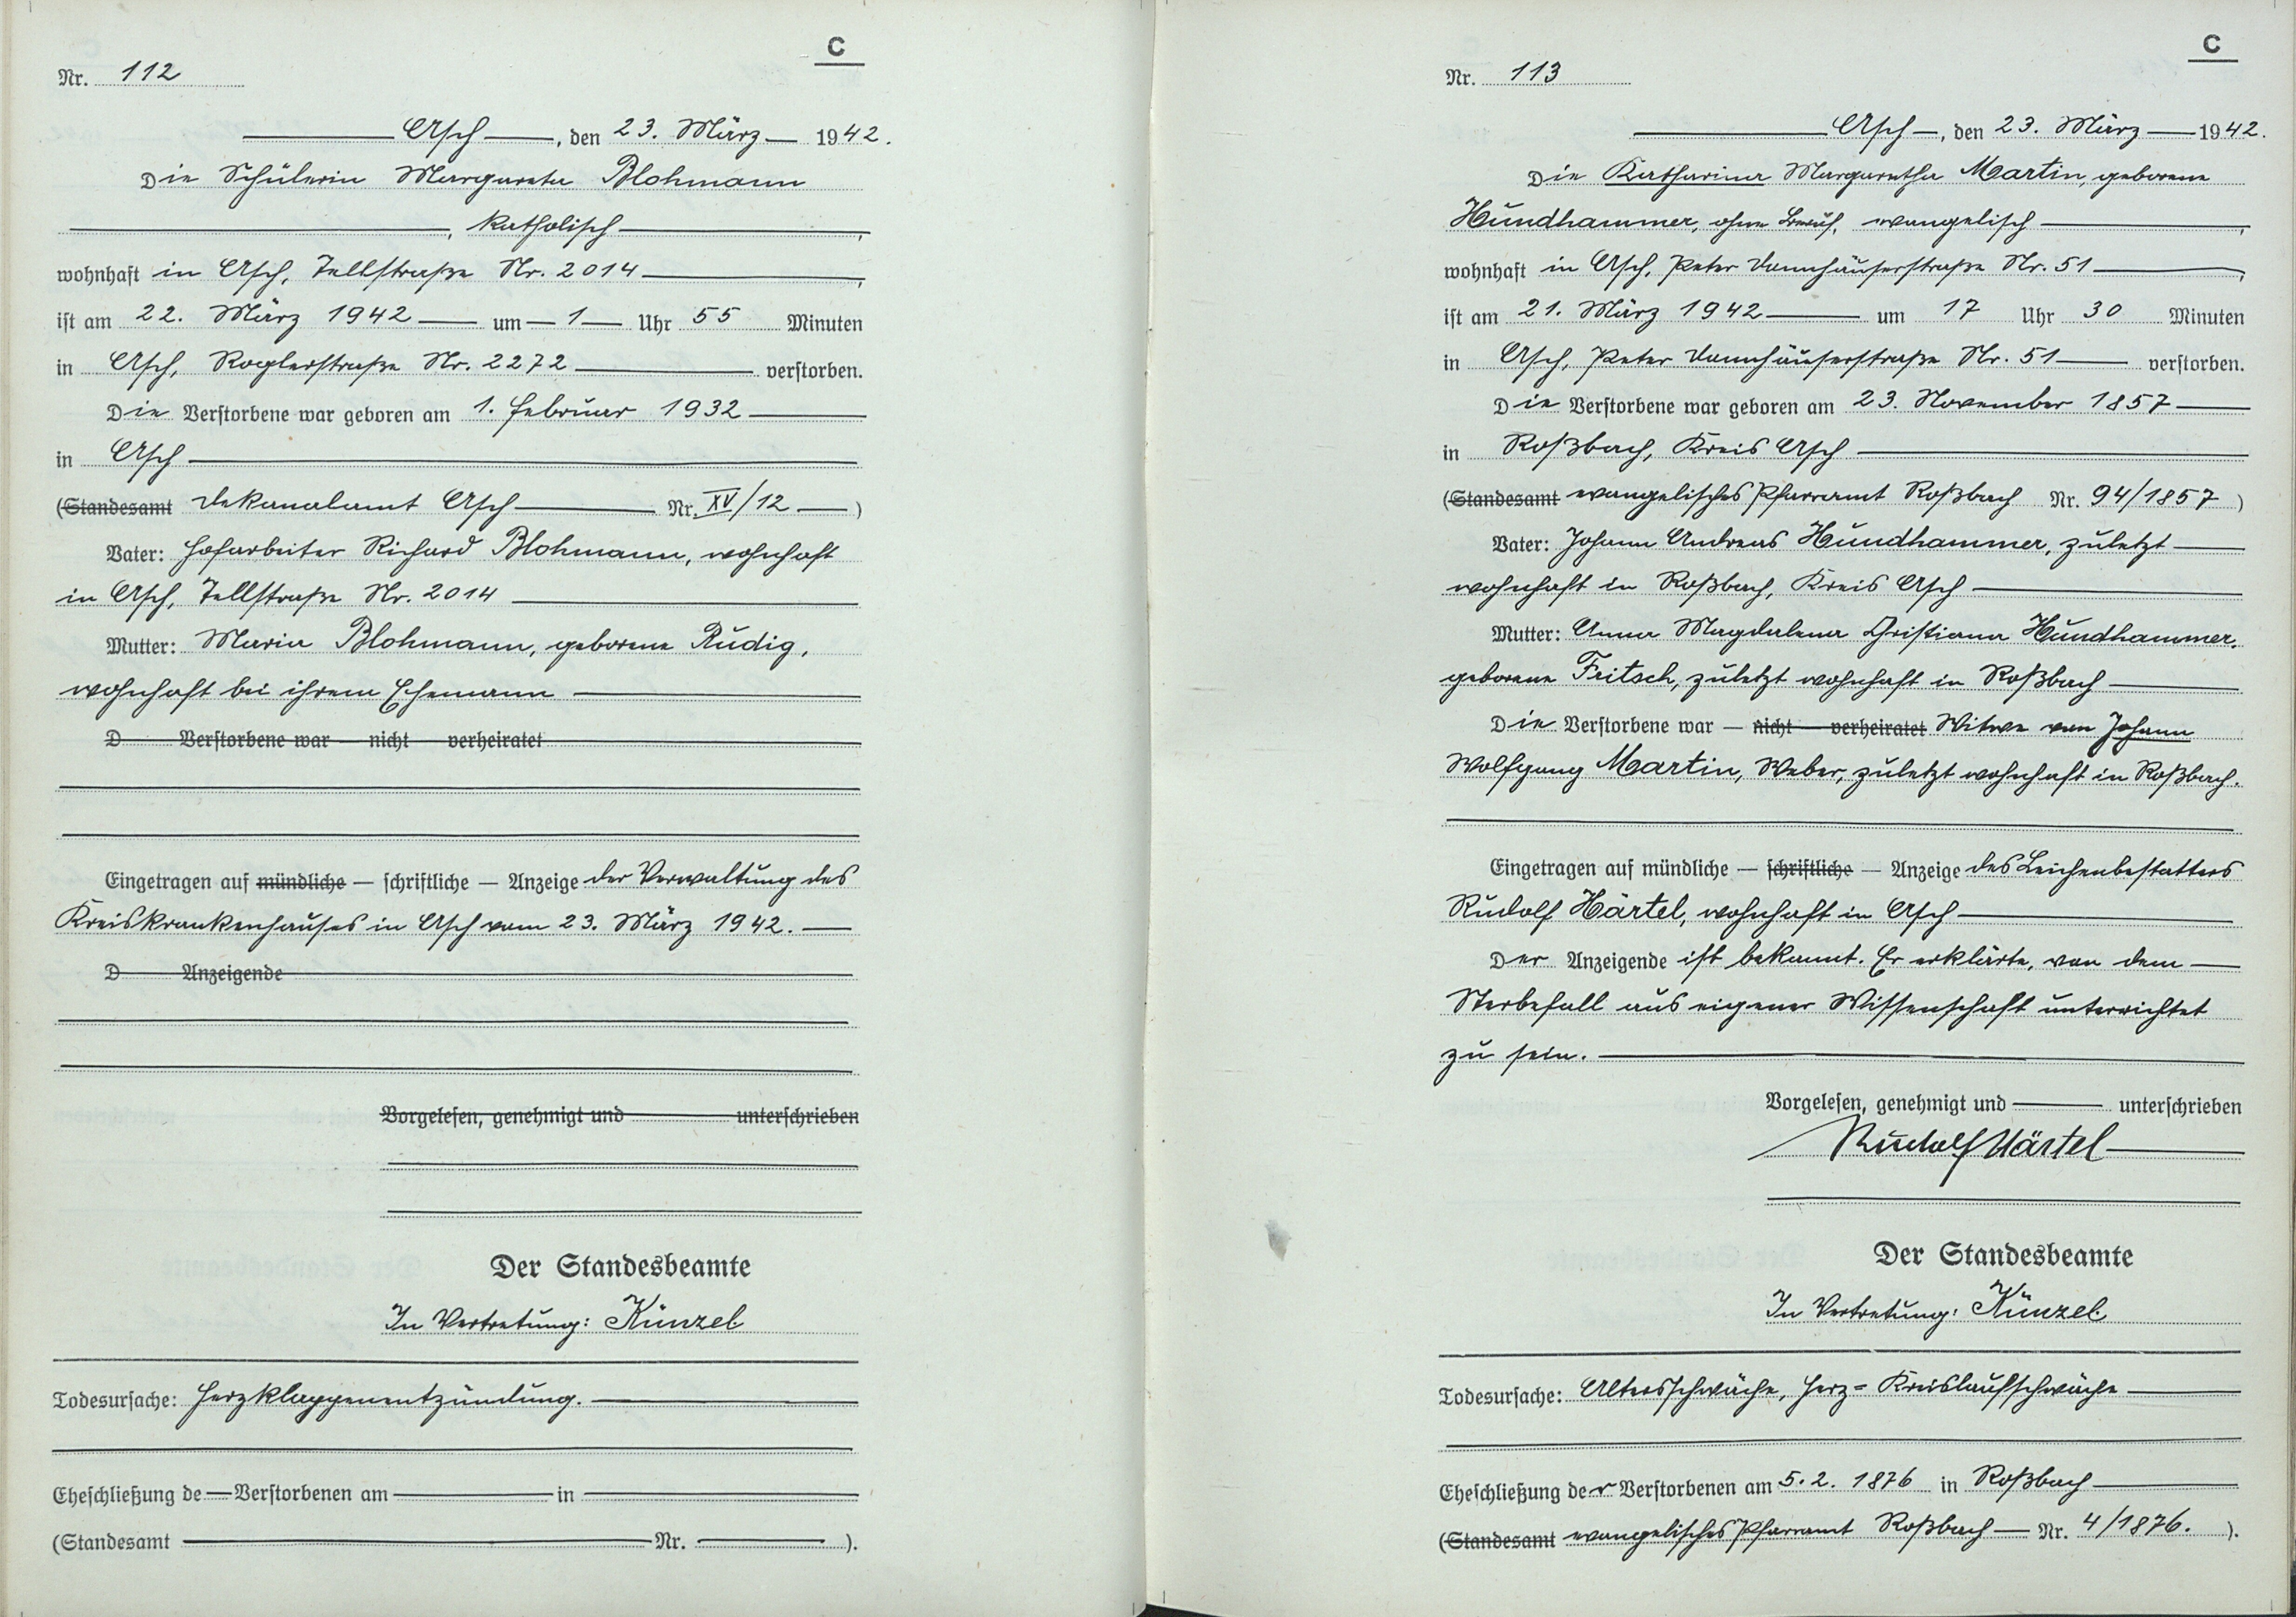 C
Nr. 112
Asch, den 23. März 1942.
Die Schülerin Margareta Blohmann
, katholisch,
wohnhaft in Asch, Tellstraße Nr. 2014,
ist am 22. März 1942 um 1 Uhr 55 Minuten
in Asch, Roglerstraße Nr. 2272 verstorben.
Die Verstorbene war geboren am 1. Februar 1932
in Asch
(Standesamt Dekanalamt Asch Nr. XV/12)
Vater: Hofarbeiter Richard Blohmann, wohnhaft
in Asch, Tellstraße Nr. 2014
Mutter: Maria Blohmann, geborene Rudig,
wohnhaft bei ihrem Ehemann
D Verstorbene war – nicht – verheiratet
Eingetragen auf mündliche – schriftliche – Anzeige der Verwaltung des
Kreiskrankenhauses in Asch vom 23. März 1942.
D Anzeigende
Vorgelesen, genehmigt und unterschrieben
Der Standesbeamte
In Vertretung: Künzel
Todesursache: Herzklappenentzündung.
Eheschließung de Verstorbenen am in
(Standesamt Nr. ).
C
Nr. 113
Asch, den 23. März 1942.
Die Katharina Margaretha Martin, geborene
Hundhammer, ohne Beruf, evangelisch,
wohnhaft in Asch, Peter Donnhäuserstraße Nr. 51,
ist am 21. März 1942 um 17 Uhr 30 Minuten
in Asch, Peter Donnhäuserstraße Nr. 51 verstorben.
Die Verstorbene war geboren am 23. November 1857
in Roßbach, Kreis Asch
(Standesamt evangelisches Pfarramt Roßbach Nr. 94/1857)
Vater: Johann Andreas Hundhammer, zuletzt
wohnhaft in Roßbach, Kreis Asch
Mutter: Anna Magdalena Christiana Hundhammer,
geborene Fritsch, zuletzt wohnhaft in Roßbach
Die Verstorbene war – nicht – verheiratet Witwe von Johann
Wolfgang Martin, Weber, zuletzt wohnhaft in Roßbach.
Eingetragen auf mündliche – schriftliche – Anzeige des Leichenbestatters
Rudolf Härtel, wohnhaft in Asch
Der Anzeigende ist bekannt. Er erklärte, von dem
Sterbefall aus eigener Wissenschaft unterrichtet
zu sein.
Vorgelesen, genehmigt und unterschrieben
Rudolf Härtel
Der Standesbeamte
In Vertretung: Künzel
Todesursache: Altersschwäche, Herz-Kreislaufschwäche
Eheschließung der Verstorbenen am 5.2. 1876 in Roßbach
(Standesamt evangelisches Pfarramt Roßbach Nr. 4/1876.).